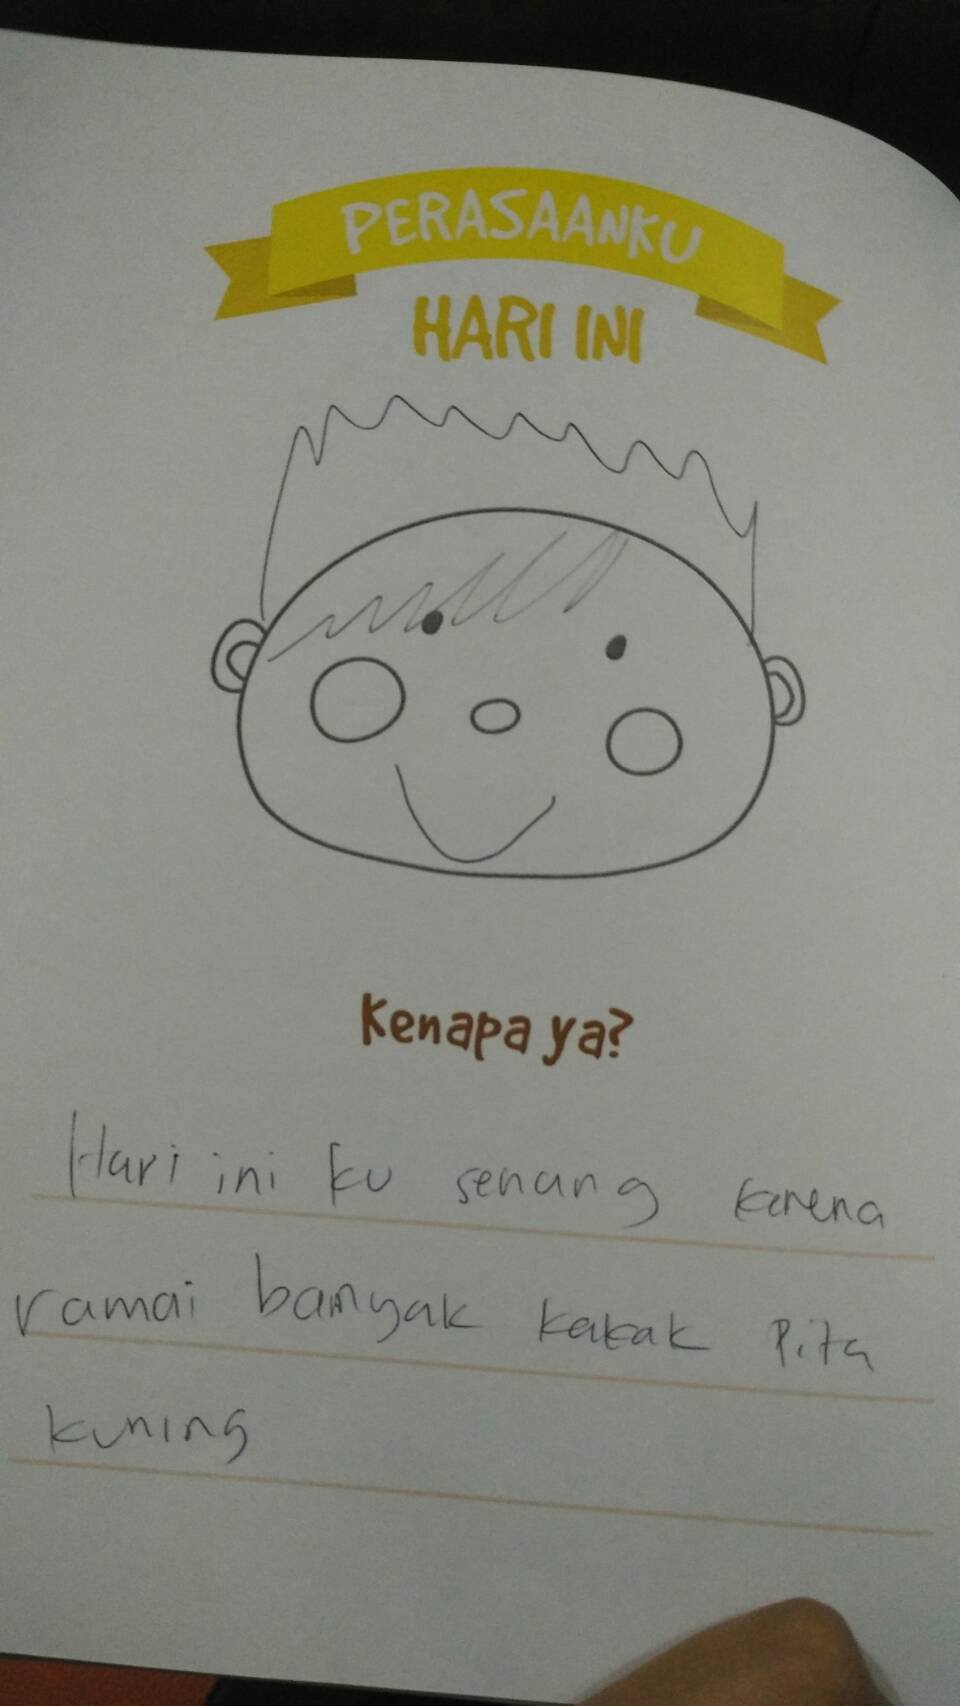 PERASAANKU
HARI INI
Kenapa ya?
Hari ini ku senang karena
ramai banyak kakak Pita
kuning